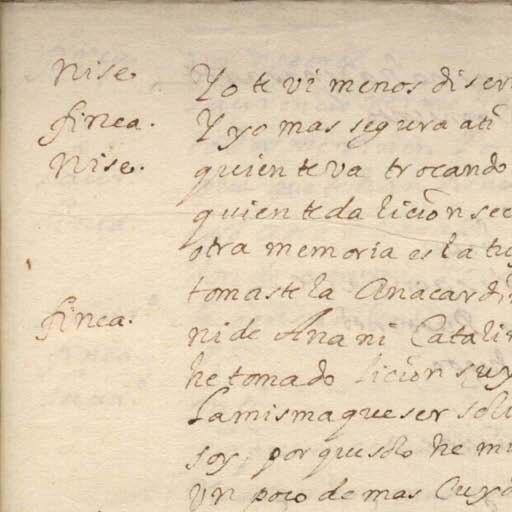 Nise. Yo te vi menos discr
finea. Y yo mas segura a ti
Nise. quien te va trocando
quien te da licion sec
otra memoria es la tuy
tomaste la Anacardi
finea. ni de Ana ni Catalin
he tomado licion suy
La misma que ser soli
soy, porque solo he mu
Un poco de mas Cuyd